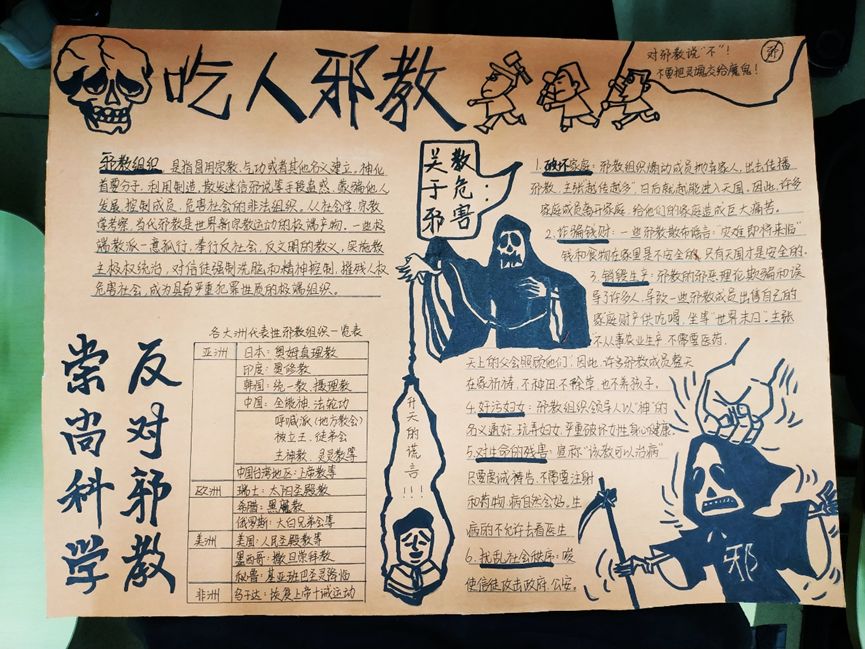 吃人邪教
对邪教说“不”!
不要把灵魂交给魔鬼!
邪
邪教组织 是指冒用宗教、气功或者其他名义建立,神化
首要分子,利用制造、散发迷信邪说等手段蛊惑、蒙骗他人,
发展、控制成员,危害社会的非法组织。从社会学、宗教
学考察,当代邪教是世界新宗教运动的极端产物。一些极
端教派一意孤行,奉行反社会,反文明的教义,实施教
主极权统治,对信徒强制洗脑和精神控制,摧残人权
危害社会,成为具有严重犯罪性质的极端组织。
关于邪
教危害:
1.破坏家庭:邪教组织煽动成员抛弃家人,出去传播
邪教,主张“越传越多”,日后就越能进入天国。因此,许多
家庭成员离开家庭,给他们的家庭造成巨大痛苦。
2.诈骗钱财:一些邪教散布谣言:“灾难即将来临”
钱和食物在家里是不安全的,只有天国才是安全的.
3.销毁生产:邪教的邪恶理论欺骗和误
导了许多人,导致一些邪教成员出售自己的
家庭财产供吃喝,坐等“世界末日”.主张
不从事农业生产,不需要医药.
天上的父会照顾他们;因此,许多邪教成员整天
在家祈祷,不种田,不除草,也不养孩子.
4.奸污妇女:邪教组织领导人以“神”的
名义通奸,玩弄妇女,严重破坏女性身心健康.
5.对生命的残害:宣称“该教可以治病”
只需要虔诚祷告,不需要注射
和药物,病自然会好。生
病的不允许去看医生
6.扰乱社会秩序:唆
使信徒攻击政府,公安.
升天的谎言!!!
邪
崇尚科学
反对邪教
各大洲代表性邪教组织一览表
亚洲 日本:奥姆真理教
印度:奥修教
韩国:统一教、摄理教
中国:全能神、法轮功
呼喊派(地方教会)
被立王、徒弟会
主神教、灵灵教等
中国台湾地区:上帝教等
欧洲 瑞士:太阳圣殿教
希腊:黑魔教
俄罗斯:大白兄弟会等
美洲 美国:人民圣殿教等
墨西哥:撒旦崇拜教
秘鲁:基亚班巴圣灵降临
非洲 乌干达:恢复上帝十诫运动